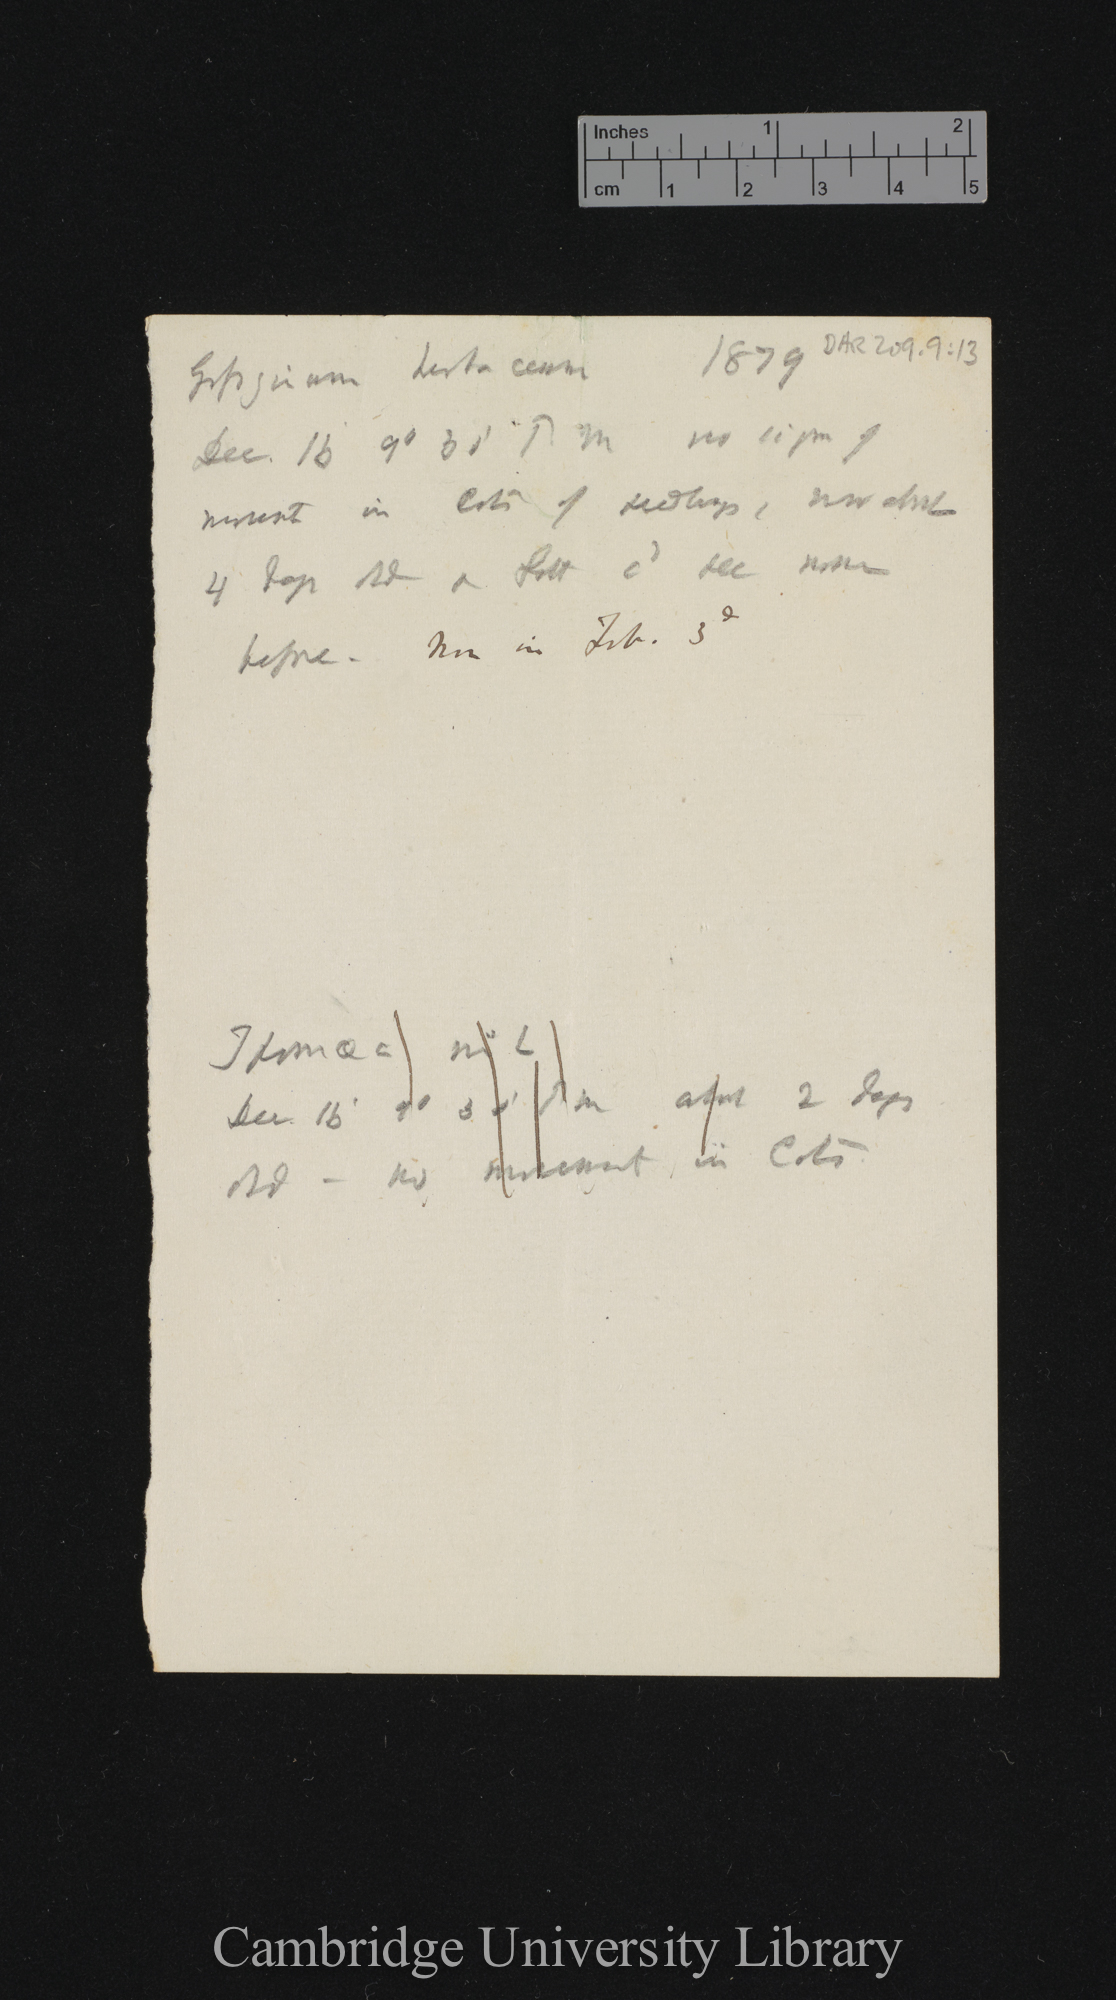 Inches 1 2
cm 1 2 3 4 5
1879 DAR 209.9:13
Dec. 16 9° 30' P. M no sign of
in Cots of seedlings, now about
4 days old & I c^d see none
before. Non in Feb. 3^d
Ipomœa
Dec 16 9° 30' P.m about 2 days
old – no movement in Cots
Cambridge University Library